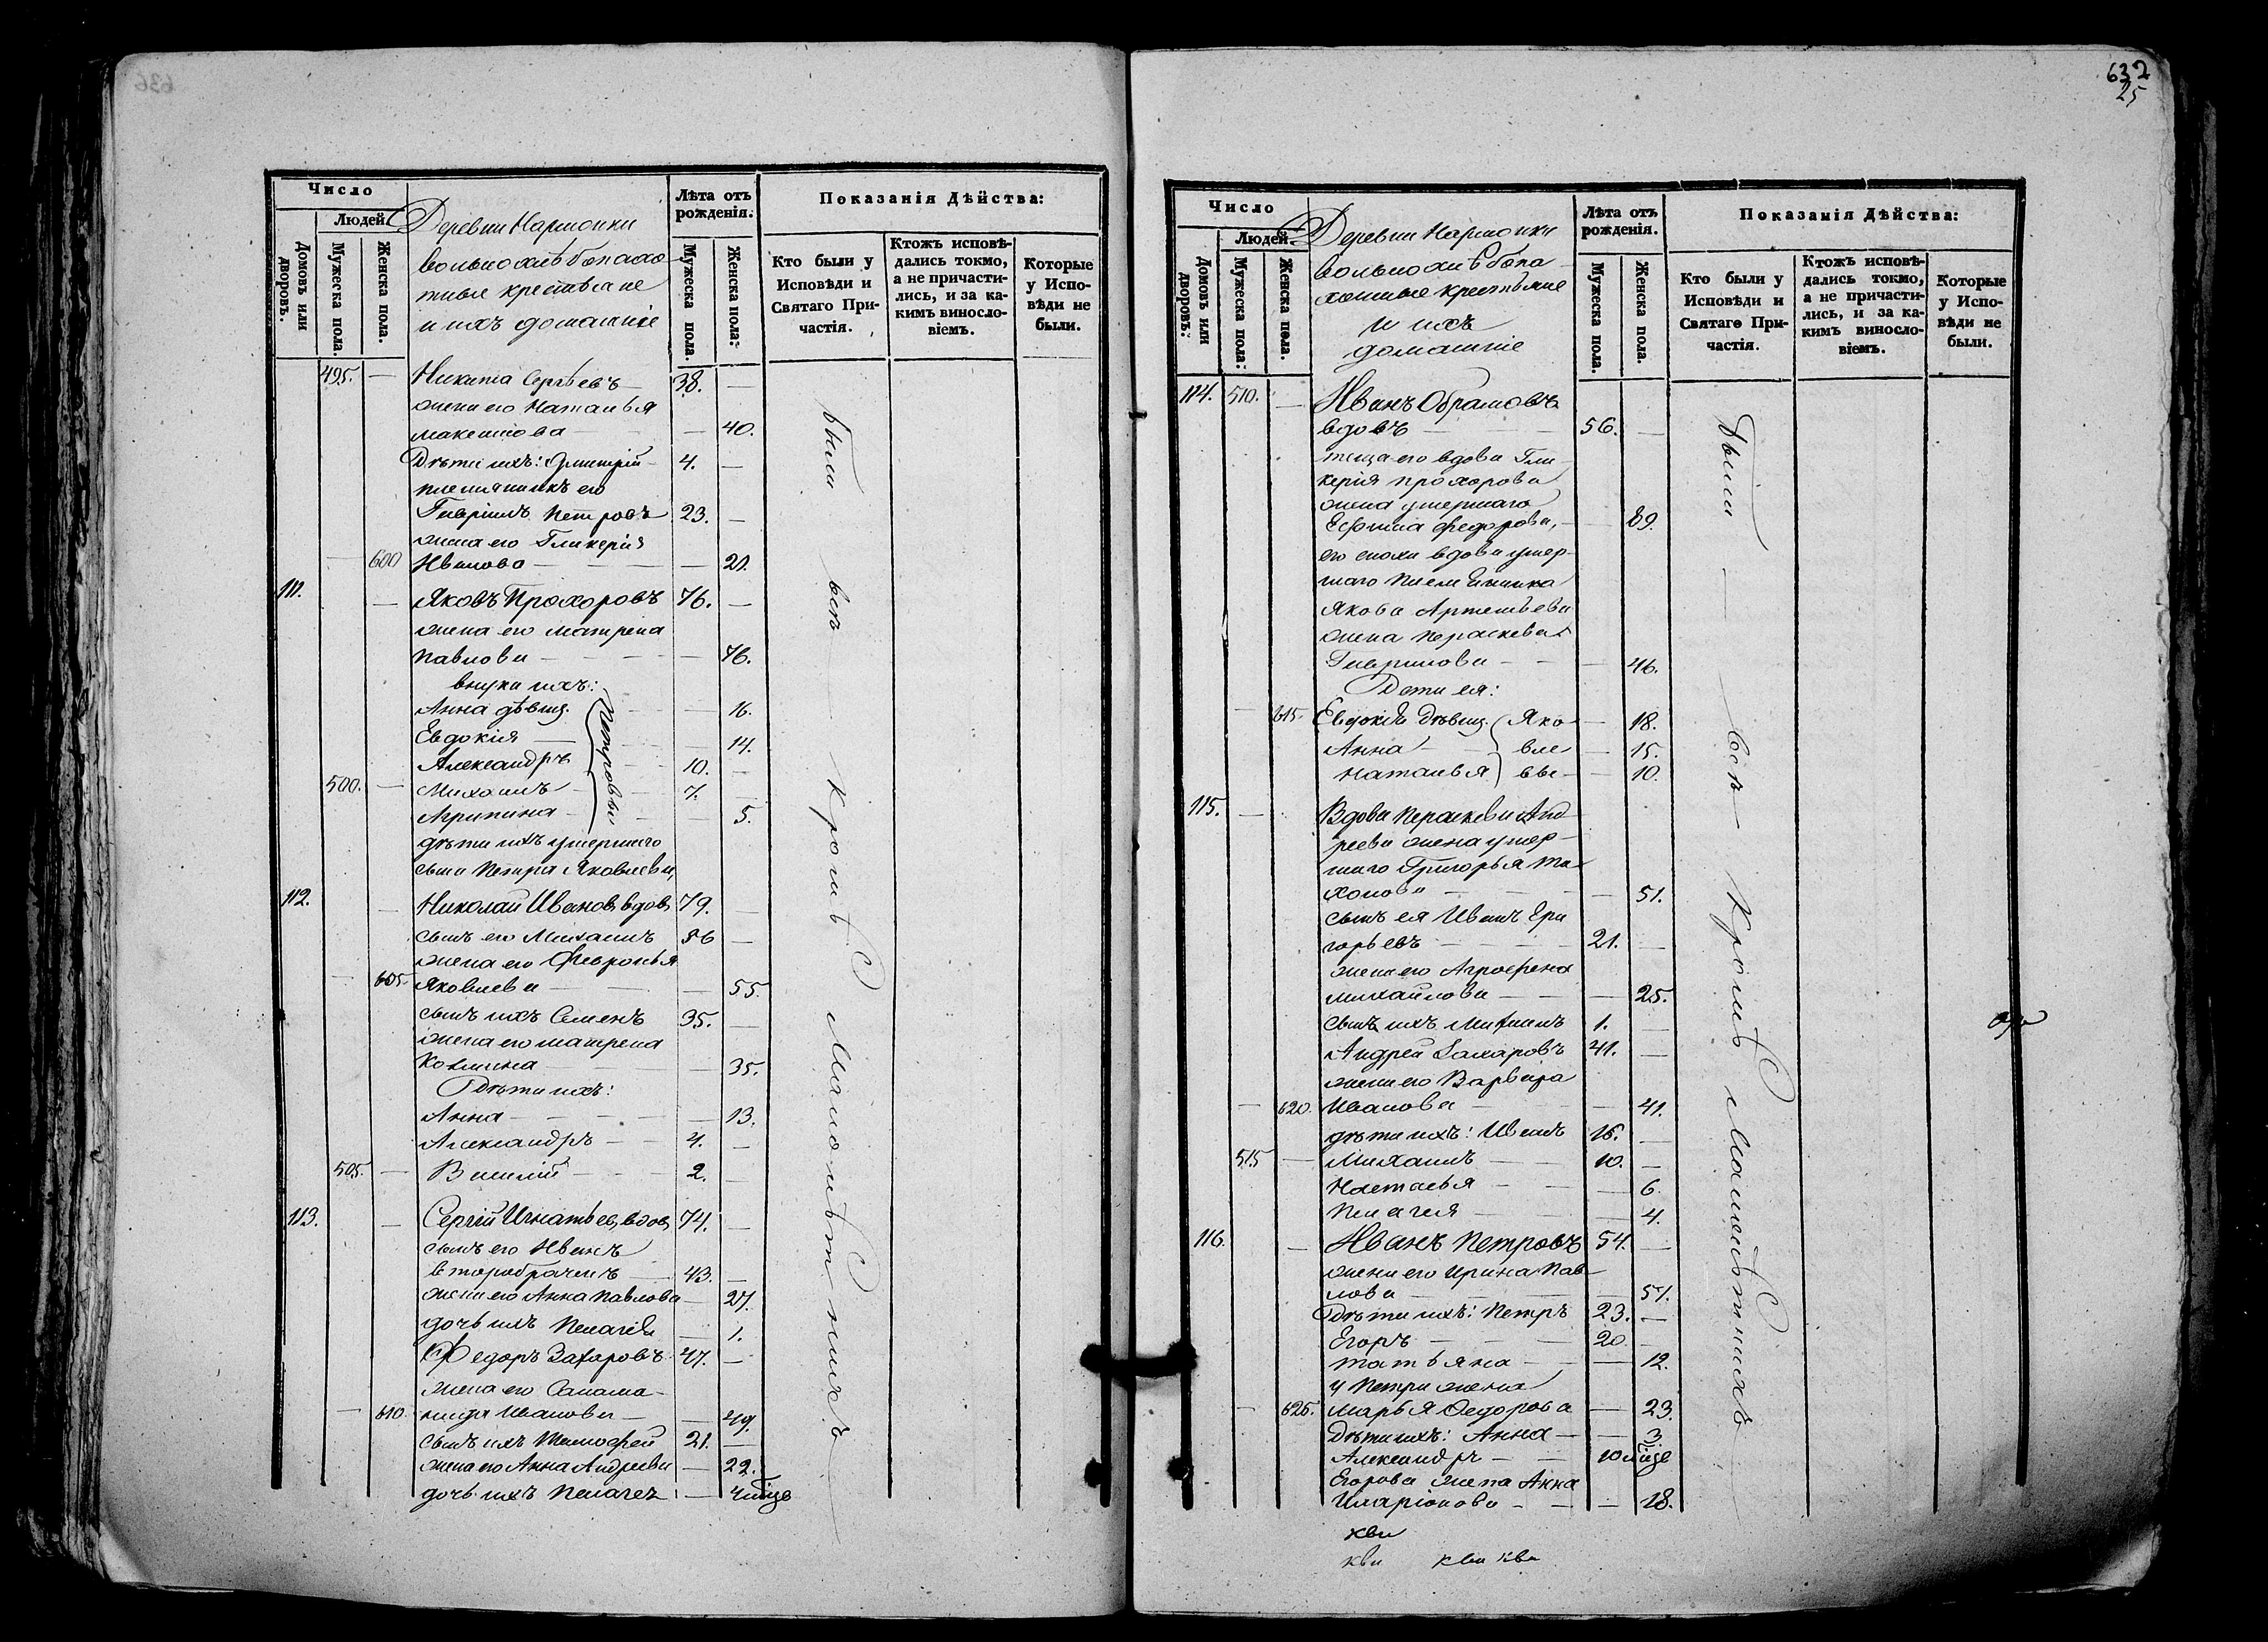 632
25
Число
Людей
Домовъ или дворовъ.
Мужеска пола.
Женска пола.
Деревни Нармонки
вольнохлѣбопахо-
тные крестьяне
и ихъ домашніе
Лѣта отъ рожденія.
Мужеска пола.
Женска пола.
Показанія Дѣйства:
Кто были у Исповѣди и Святаго При-частія.
Ктожъ исповѣ-дались токмо, а не причасти-лись, и за ка-кимъ винносло-віемъ.
Которые у Испо-вѣди не были.
495. — Никита Сергѣевъ — 38. —
жена его Наталья
Максимова — 40.
Дѣти ихъ: Дмитрій — 4. —
племянникъ его
Гаврiилъ Петровъ 23. —
жена его Гликерія
— 600 Иванова — — 21.
111. — Яковъ Прохоровъ 76. —
жена его Матрена
Павлова — — 76.
внуки ихъ:
Анна дѣвиц. — — 16.
Евдокія — — 14.
Александръ — 10. —
500. — Михаилъ — 7. —
Агрипина — — 5.
Петровы
дѣти ихъ умершаго
сына Петра Яковлева
112. — Николай Ивановъ вдов. 79. —
сынъ его Михаилъ 56 —
жена его Февронья
— 605. Яковлева — — 55.
сынъ ихъ Семенъ 35. —
жена его Матрена
Козмина — — 35.
Дѣти ихъ:
Анна — — 13.
Александръ — 4. —
505. — Василій — 2. —
113. — Сергій Игнатьев. вдов. 74. —
сынъ его Иванъ
второбраченъ — 43. —
жена его Анна Павлова — 27.
дочь ихъ Пелагея — 1.
Федоръ Захаровъ 47. —
жена его Саломо-
— 610. нида Иванова — — 49.
сынъ ихъ Тимофей 21. —
жена его Анна Андреева — 22.
дочь ихъ Пелагея — 4 мѣсяц
были всѣ кромѣ малолѣтнихъ
Число
Людей
Домовъ или дворовъ.
Мужеска пола.
Женска пола.
Деревни Нармонки
вольнохлѣбопа-
хотные крестьяне
и ихъ
домашніе
Лѣта отъ рожденія.
Мужеска пола.
Женска пола.
Показанія Дѣйства:
Кто были у Исповѣди и Святаго При-частія.
Ктожъ исповѣ-дались токмо, а не причасти-лись, и за ка-кимъ винносло-віемъ.
Которые у Испо-вѣди не были.
114. 510. — Иванъ Обрамовъ
вдовъ — 56. —
теща его вдова Гли-
керія Прохорова
жена умершаго
Ефима Федорова, — 89.
его сноха вдова умер-
шаго племянника
Якова Артемьева
жена Параскева
Гаврилова — — 46.
Дети ея:
— 615. Евдокія дѣвиц. Яко — 18.
Анна вле — 15.
Наталья вы — 10.
115. — Вдова Параскева Анд-
реева жена умер-
шаго Григорья Ти-
хонова — — 51.
сынъ ея Иванъ Гри
горьевъ — 21. —
жена его Агрофена
Михайлова — — 25.
сынъ ихъ Михаилъ 1. —
Андрей Захаровъ 41. —
жена его Варвара
— 620. Иванова — — 41.
дѣти ихъ: Иванъ 16. —
515 — Михаилъ — 10. —
Настасья — — 6.
Пелагея — — 4.
116. — Иванъ Петровъ 54. —
жена его Ирина Пав-
лова — — 51.
Дѣти ихъ: Петръ 23. —
Егоръ — 20. —
Татьяна — — 12.
у Петра жена
— 625. Марья Федорова — 23.
Дѣти ихъ: Анна — — 3
Александръ — 10 мѣсяц
Егорова жена Анна
Иларіонова — — 18.
были — всѣ кромѣ малолѣтнихъ
кви
кви кви кви